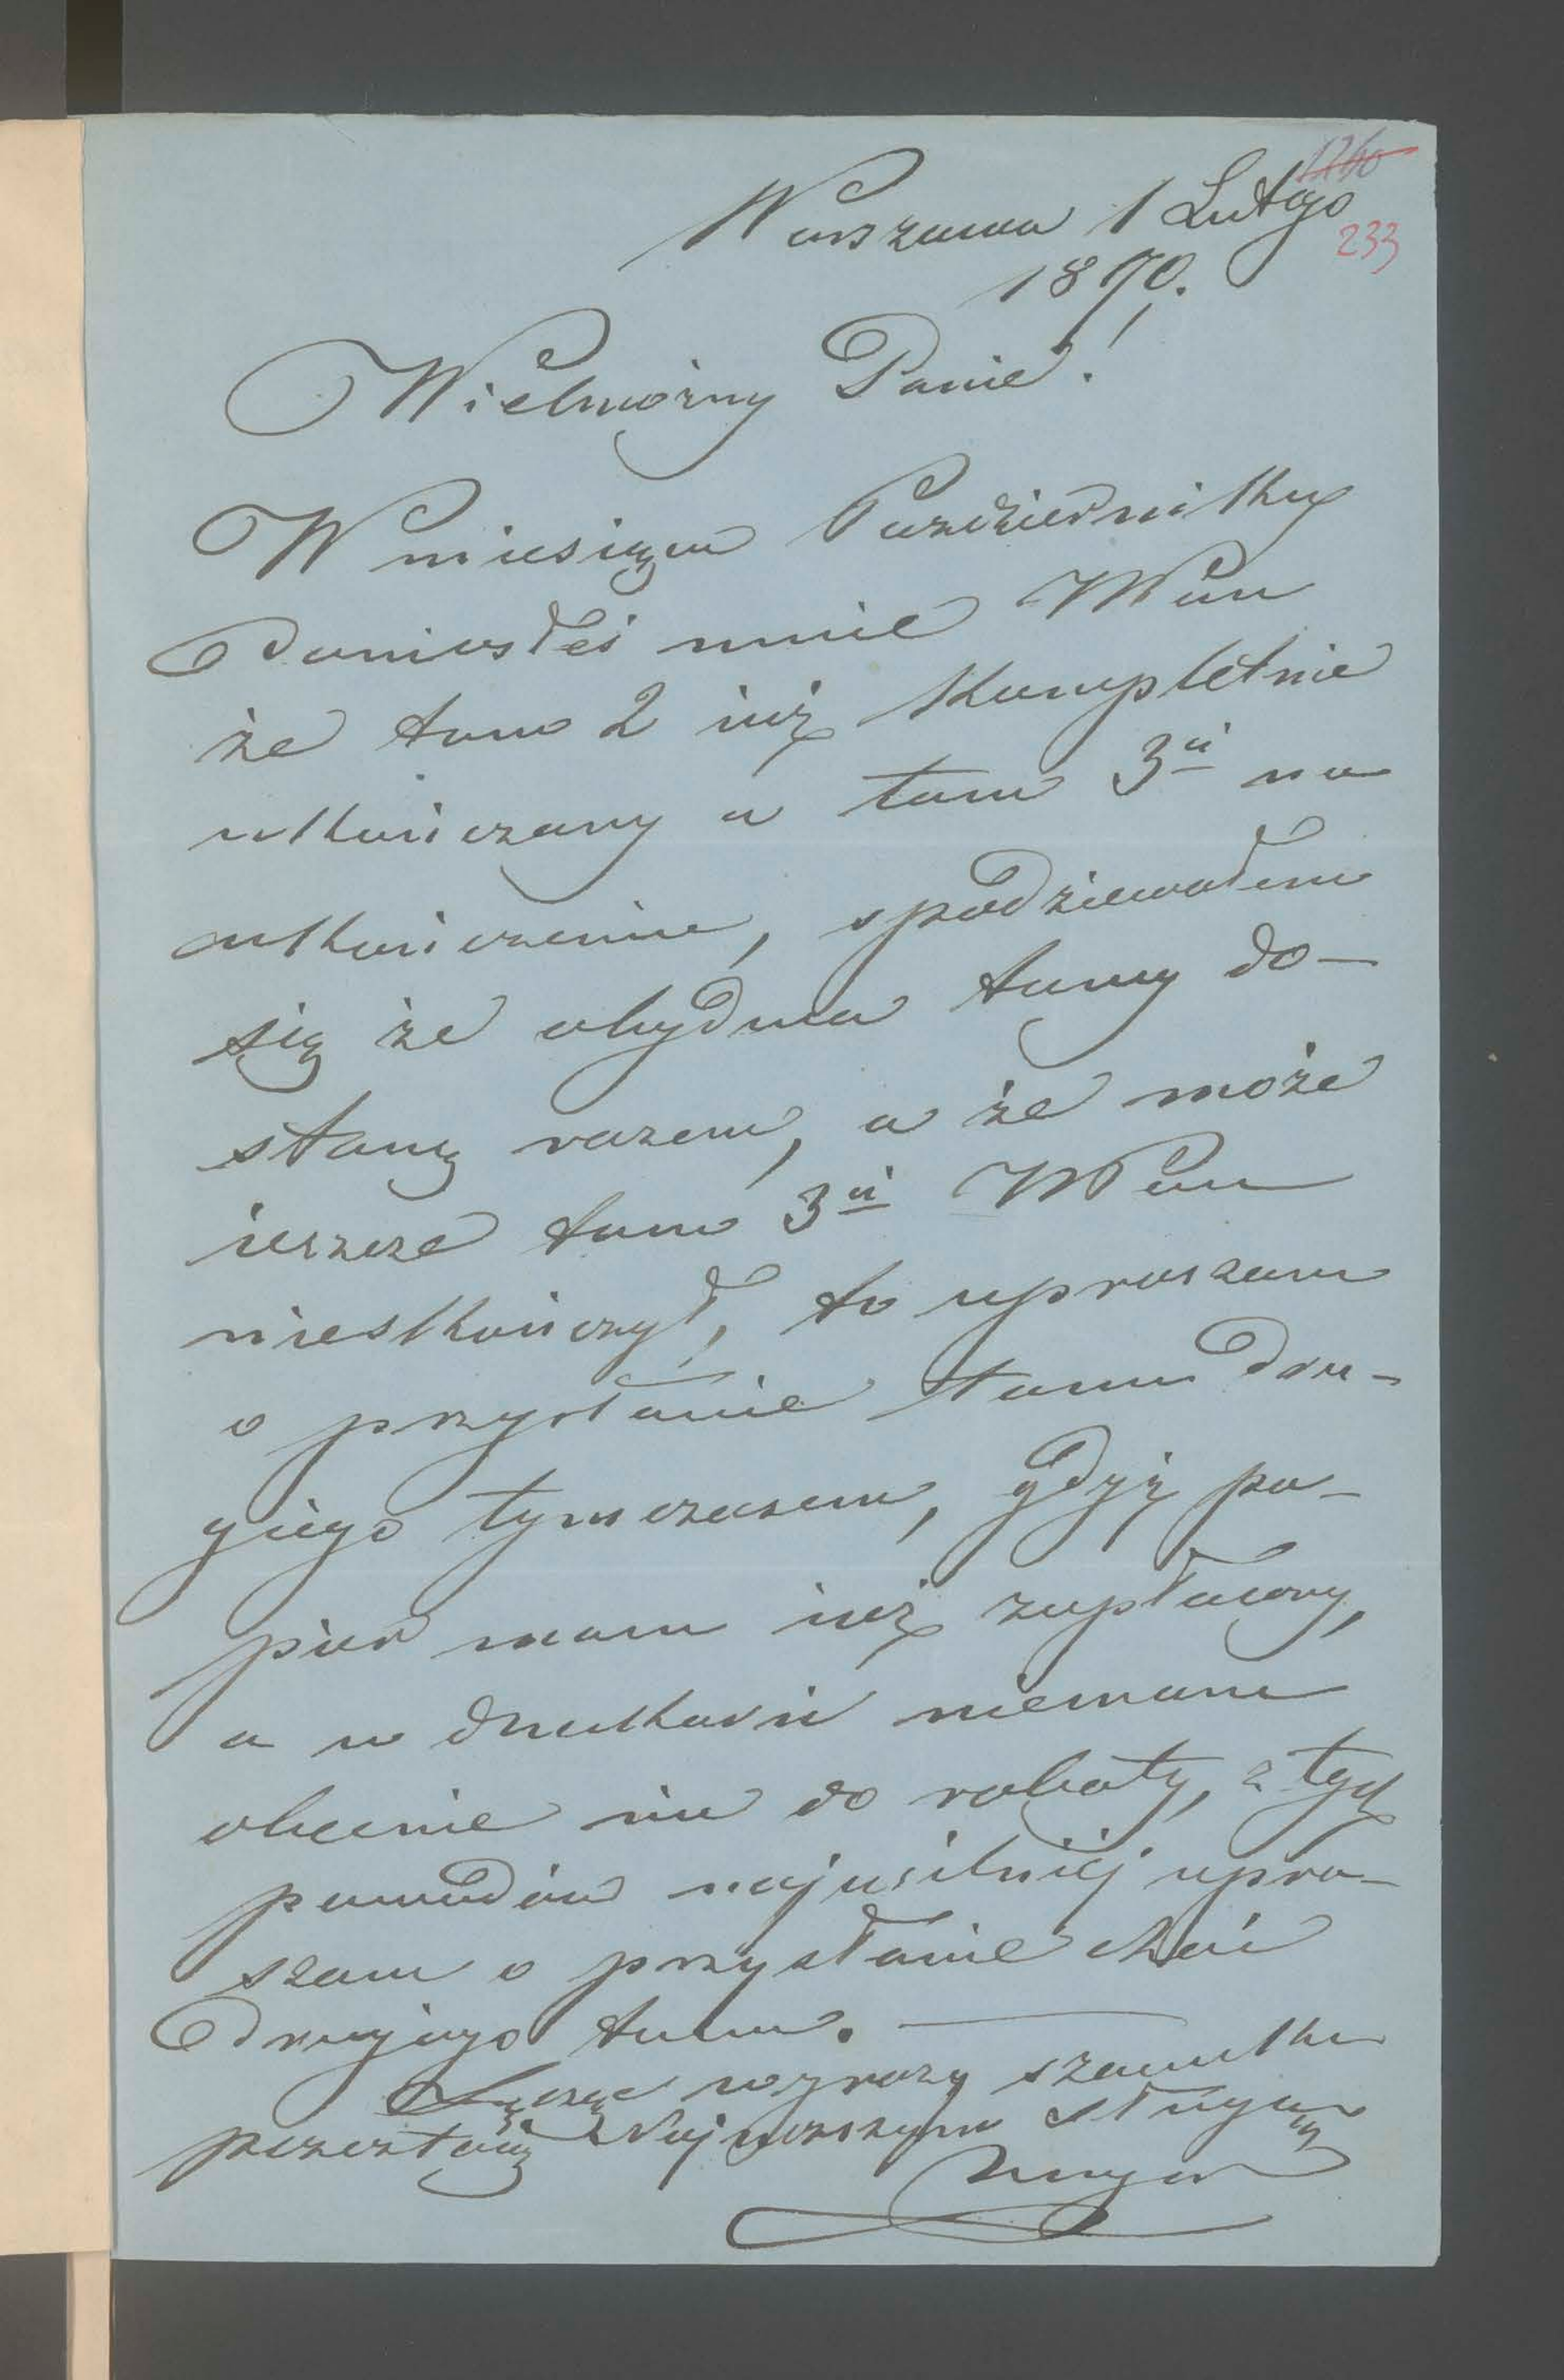 1260
Warszawa 1 Lutego
233
1870.
Wielmożny Panie!
W miesiącu Październiku
doniosłeś mnie WPan
że tom 2 iuż kompletnie
ukończony a tom 3ci na
ukończeniu, spodziewałem
się że obydwa tomy do-
stanę razem, a że może
ieszcze tom 3ci WPan
nieskończył, to upraszam
o przysłanie tomu dru-
giego tymczasem, gdyż pa-
pier mam iuż zapłacony,
a w drukarni niemam
obecnie nic do roboty, z tych
powodów najusilniéj upra-
szam o przysłanie choć
drugiego tomu.
Łączę wyrazy szacunku
pozostaję Najniższym sługą
Unger